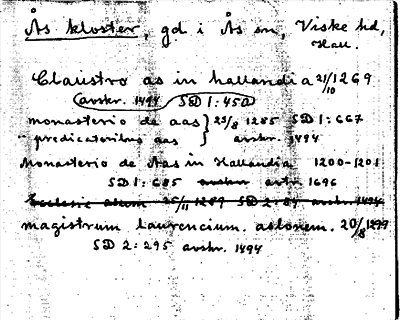 Ås kloster, gd i Ås sn, Viske hd,
Hall.
Claustro as in hallandia 21/10 1269
(avskr. 1494 SD 1:450)
monasterio de aas } 25/8 1285 SD 1:667
" predicatoribus aas } avskr. 1494
Monasterio de Aas in Hallandia 1200-1201
SD 1:685 avskr. 1696
Ecclesie asum 25/11 1289 SD 2:87 avskr. 1494
magistrum laurencium aslonem. 20/8 1299
SD 2:295 avskr. 1494